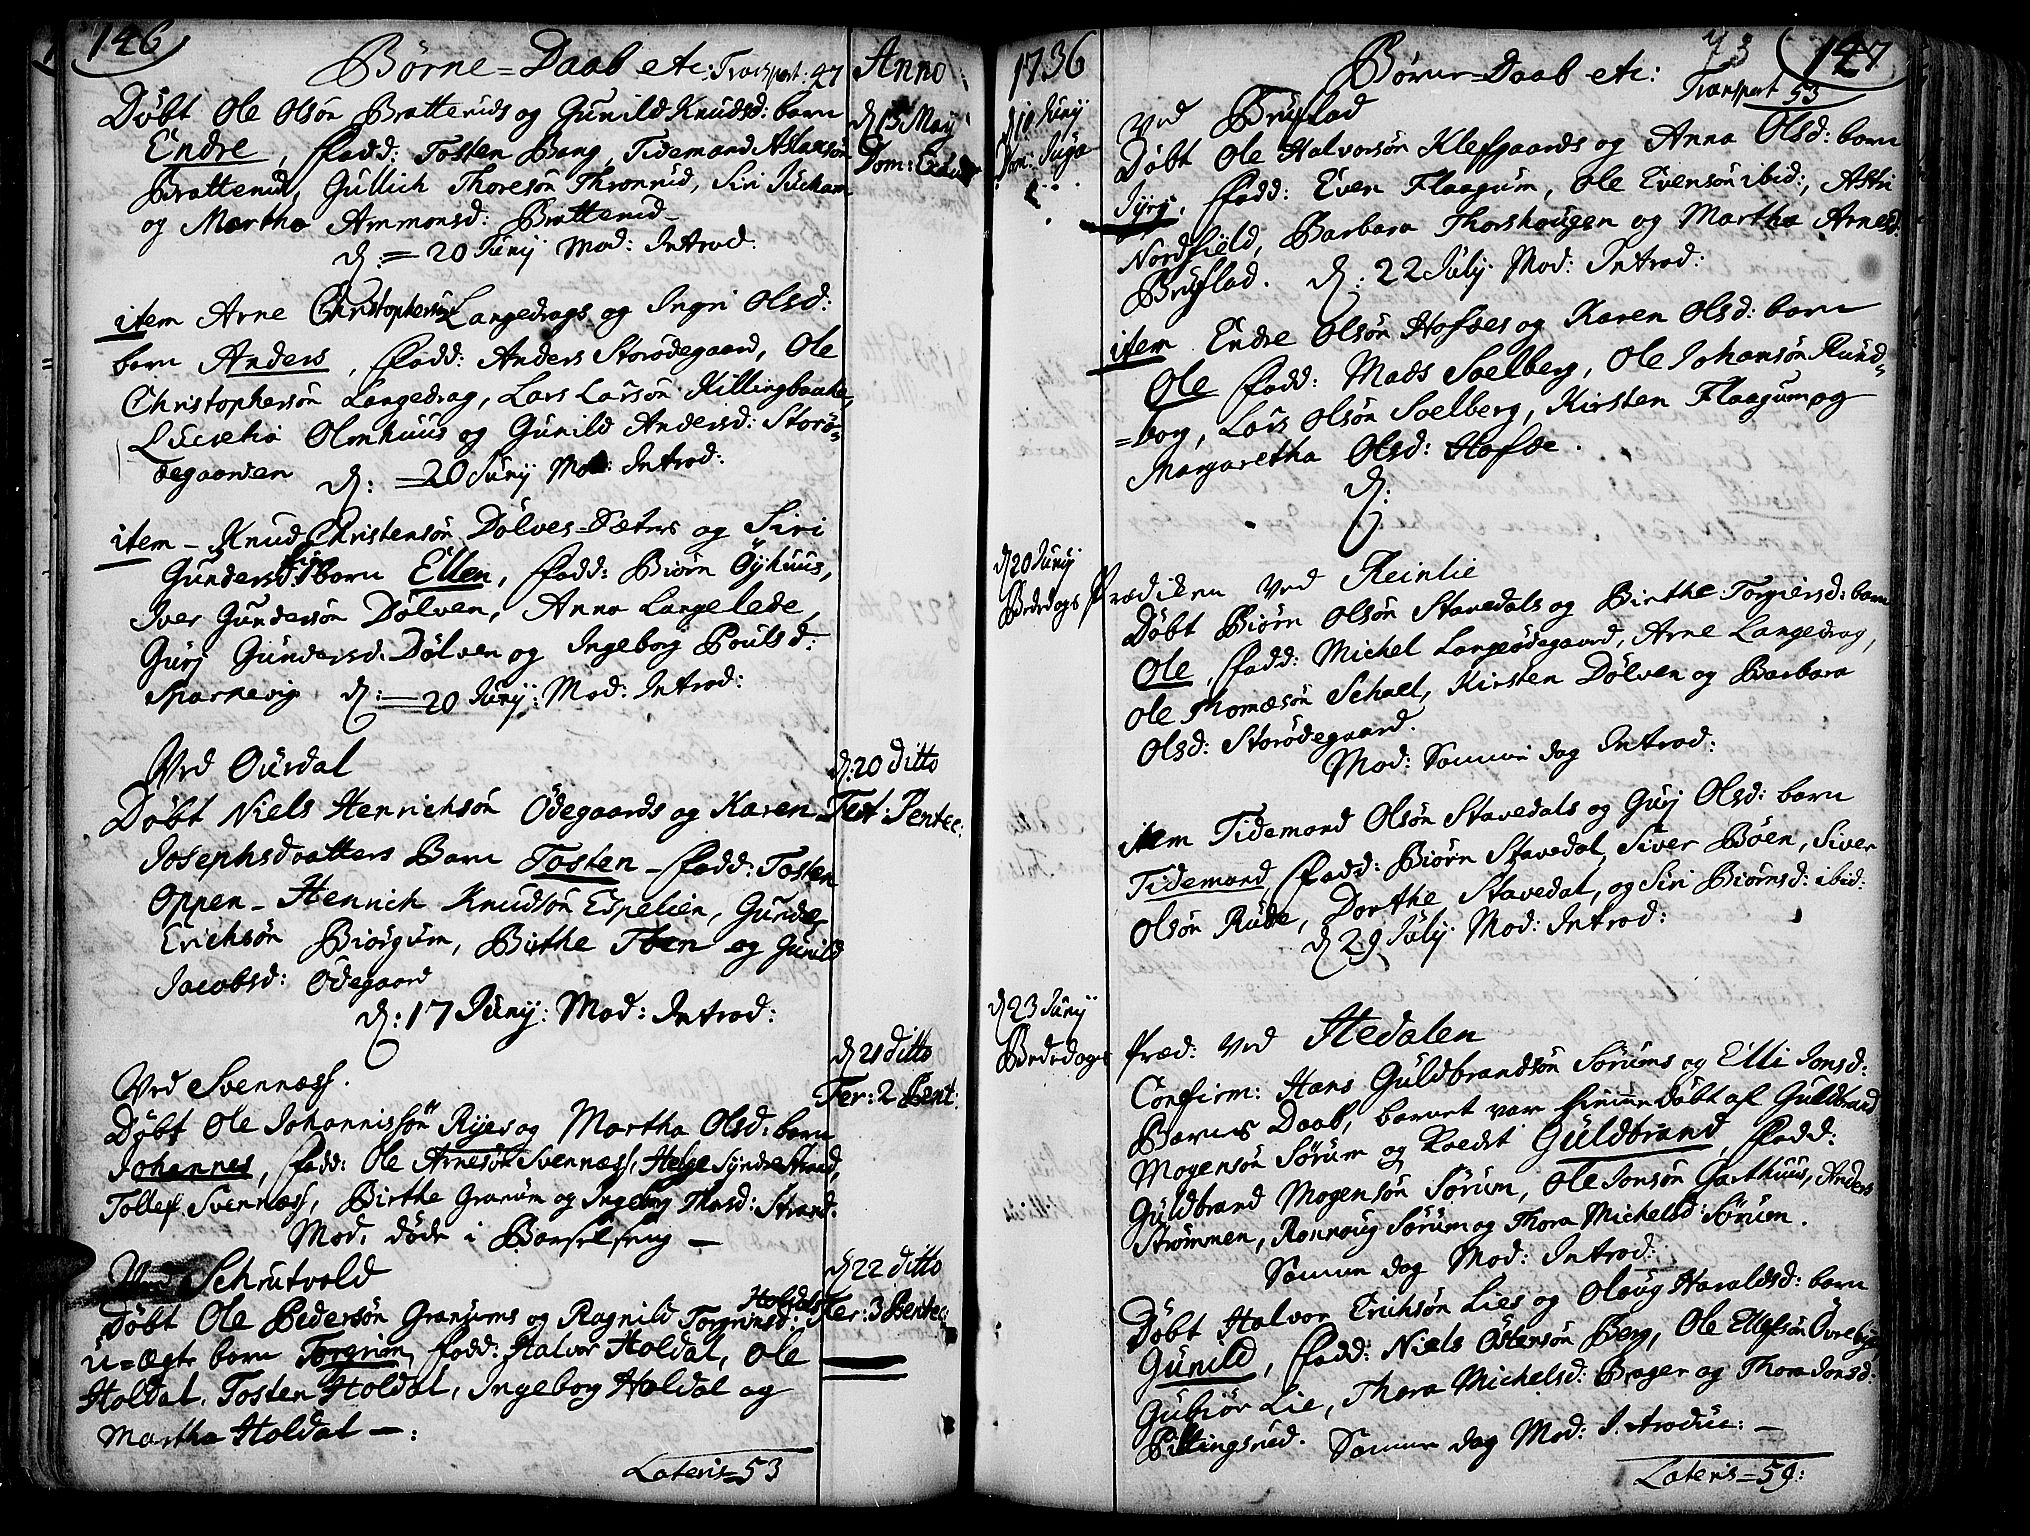 146
Børne-Daab etc: Transport: 47
Anno
Døbt Ole Olsøn Bratteruds og Gunild Knudsd: barn
d 13 Maÿ
Endre, fadd: Tosten Bang, Tidemand Aslaksøn
Dom: Exaudi
Bratterud, Gullich Thoresøn Thronrud, Siri
og Martha Ammonsd: Bratterud
d: = 20 Junÿ Mod: Introd:
item Arne Christophersøn Langedrags og Ingri Olsd:
barn Anders, fadd: Anders Storødegaard, Ole
Christophersøn Langedrag, Lars Larsøn Killingbaake,
Lucretia Olmhuus og Gunild Andersd: Storø-
degaarden d: = 20 Junÿ Mod: Introd:
item - Knud Christensøn Dølves-Sæters og Siri
Gundersd: barn Ellen, fadd: Biørn Øÿhuus,
Iver Gundersøn Dølven, Anna Langelede,
Gurj Gundersd: Dølven og Ingeborg Poulsd:
Sparnevig d: = 20 Junÿ: Mod: Introd:
Ved Ourdal
d: 20 ditto
Døbt Niels Henrichsøn Ødegaards og Karen
Fest: Pentec:
Josephsdaatters Barn Tosten - fadd: Tosten
Oppen - Henrich Knudsøn Espelien, Gunder
Erichsøn Biørgum, Birthe Toen og Gunild
Jacobsd: Ødegaard
d: 17 Junÿ: Mod: Introd:
d 21 ditto
Ved Svennæss.
Fer: 2 Pent:
Døbt Ole Johannissøn Ryes og Martha Olsd: barn
Johannes, fadd: Ole Arnesøn Svennæss, Helge Syndre Strand,
Tollef Svennæss, Birthe Granum og Ingeborg Thosd: Strand.
Mod: døde i Barselseng —
d 22 ditto
Ved Schrutvold
Døbt Ole Pedersøn Granums og Ragnild Torgrimsd: Holdals
Fer: 3 Pentec:
u-ægte barn Torgrim, fadd: Halvor Holdal, Ole
Holdal, Tosten Holdal, Ingeborg Holdal og
Martha Holdal —:
Lateris = 53
1736
Børne-Daab etc:
73
147
Transport 53
d 10 Junÿ
Ved Bruflad
Døbt Ole Halvorsøn Klefgaards og Anna Olsd: barn
Jyrj, fadd: Even Flaagum, Ole Evensøn ibid:, Astri
Nordfield, Barbara Thorshougen og Martha Arnesd:
Bruflad. d: 22 Julÿ Mod: Introd:
item Endre Olsøn Hofdes og Karen Olsd: barn
Ole fadd: Mads Soelberg, Ole Johansøn Rund-
=borg, Lars Olsøn Soelberg, Kirsten Flaagum og
Margaretha Olsd: Hofde.
d:
d 20 Junÿ
Bededags Prædiken Ved Reinlie
Døbt Biørn Olsøn Stavedals og Birthe Torgiersd: barn
Ole, fadd: Michel Langeødegaard, Arne Langedrag,
Ole Thomæsøn Schael, Kirsten Dølven og Barbara
Olsd: Storødegaard.
Mod: Samme dag Introd:
item Tidemand Olsøn Stavedals og Gurj Olsd: barn
Tidemand, fadd: Biørn Stavedal, Siver Bøen, Siver
Olsøn Rude, Dorthe Stavedal, og Siri Biørnsd: ibid:
d 29 Julÿ Mod: Introd:
d 23 Junÿ
Bededags Præd: Ved Hedalen
Confirm: Hans Guldbrandsøn Sørums og Elli Jonsd:
Barns Daab, barnet var hiemmedøbt af Guldbrand
Mogensøn Sørum og kaldt Guldbrand, fadd:
Guldbrand Mogensøn Sørum, Ole Jonsøn Garthuus, Anders
Strømmen, Ronnoug Sørum og Thora Michelsd: Sørum.
Samme dag Mod: Introd:
Døbt Halvor Erichsøn Lies og Oloug Haraldsd: barn
Gunild, fadd: Niels Østensøn Berg, Ole Ellefsøn Øvrebye
Gubiør Lie, Thora Michelsd: Brager og Thora Jonsd:
Pillingsrud. Samme dag Mod: Introduc: —
Lateris = 59: